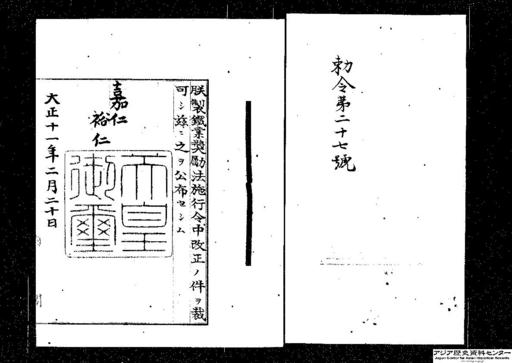 勅令第二十七號
朕製鐵業奬勵法施行令中改正ノ件ヲ裁
可シ茲ニ之ヲ公布セシム
嘉仁
裕仁
天皇
御璽
大正十一年二月二十日
アジア歴史資料センター
Japan Center for Asian Historical Records